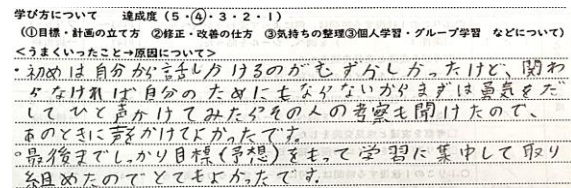 学び方について　　達成度（５・④・３・２・１）
（①目標・計画の立て方　②修正・改善の仕方　③気持ちの整理③個人学習・グループ学習　などについて）
＜うまくいったこと→原因について＞
・初めは自分から話しかけるのがむずかしかったけど、関わ
らなければ自分のためにもならないからまずは勇気をだ
してひと声かけてみたらその人の考察も聞けたので、
あのときに声をかけてよかったです。
。最後までしっかり目標(予想)をもって学習に集中して取り
組めたのでとてもよかったです。